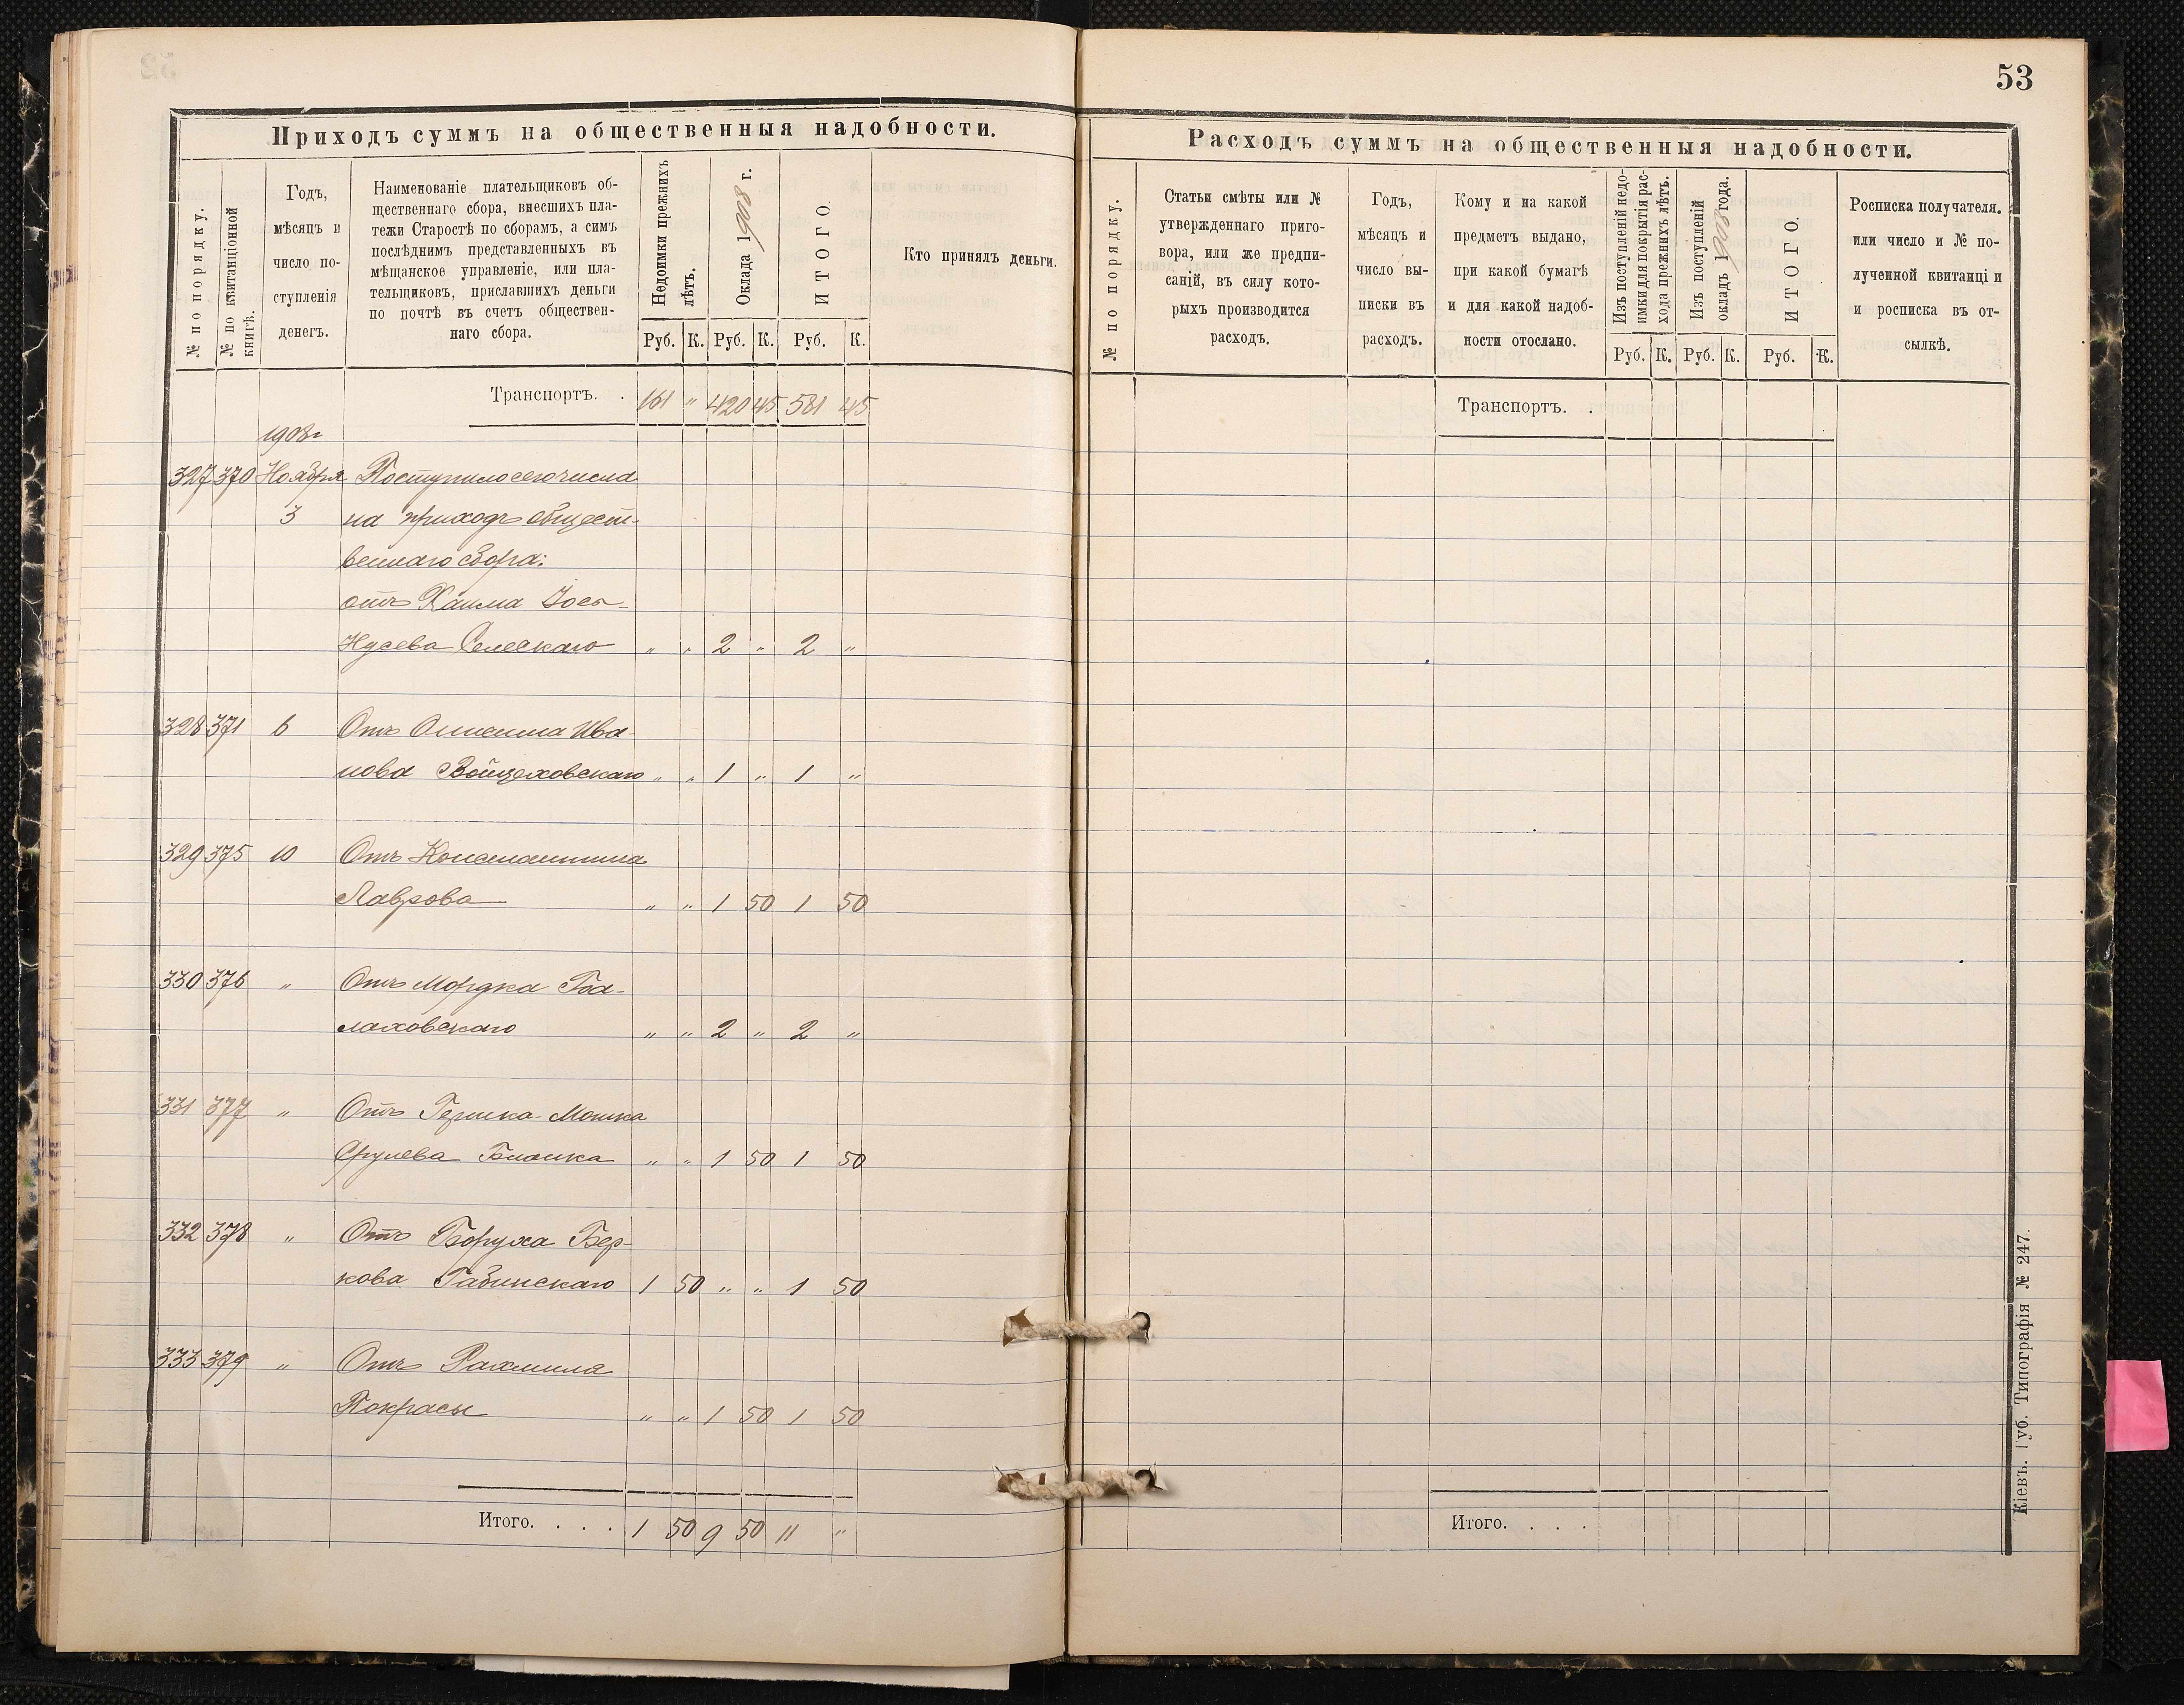 53
Приходъ суммъ на общественныя надобности.
№ по порядку.
№ по квитанціонной
книгѣ.
Годъ,
мѣсяцъ и
число по-
ступленія
денегъ.
Наименованіе плательщиковъ об-
щественнаго сбора, внесшихъ пла-
тежи Старостѣ по сборамъ, а симъ
послѣднимъ представленныхъ въ
мѣщанское управленіе, или пла-
тельщиковъ, приславшихъ деньги
по почтѣ въ счетъ обществен-
наго сбора.
Недоимки прежнихъ
лѣтъ.
Оклада 1908 г.
ИТОГО.
Кто принялъ деньги.
Руб. К. Руб. К. Руб. К.
Транспортъ. . 161 " 420 45 581 45
1908 г
327 370 Ноября Поступило сего числа
3 на приходъ общест-
веннаго сбора:
отъ Хаима Іось-
Нусева Селескаго " " 2 " 2 "
328 371 6 Отъ Онисима Ива-
нова Войцеховскаго " " 1 " 1 "
329 375 10 Отъ Константина
Лаврова " " 1 50 1 50
330 376 " Отъ Мордка Ба-
лаховскаго " " 2 " 2 "
331 377 " Отъ Гершка-Мошка
Срулева Бланка " " 1 50 1 50
332 378 " Отъ Боруха Бер-
кова Рабинскаго 1 50 " " 1 50
333 379 " Отъ Рахмила
Покрасы " " 1 50 1 50
Итого. . . . 1 50 9 50 11 "
Расходъ суммъ на общественныя надобности.
№ по порядку.
Статьи смѣты или №
утвержденнаго приго-
вора, или же предпи-
саній, въ силу кото-
рыхъ производится
расходъ.
Годъ,
мѣсяцъ и
число вы-
писки въ
расходъ.
Кому и на какой
предметъ выдано,
при какой бумагѣ
и для какой надоб-
ности отослано.
Изъ поступленій недо-
имки для покрытія рас-
хода прежнихъ лѣтъ.
Изъ поступленій
окладъ 1908 года.
ИТОГО.
Росписка получателя.
или число и № по-
лученной квитанціи
и росписка въ от-
сылкѣ.
Руб. К. Руб. К. Руб. К.
Транспортъ. .
Итого. . . .
Кіевъ. Губ. Типографія № 247.